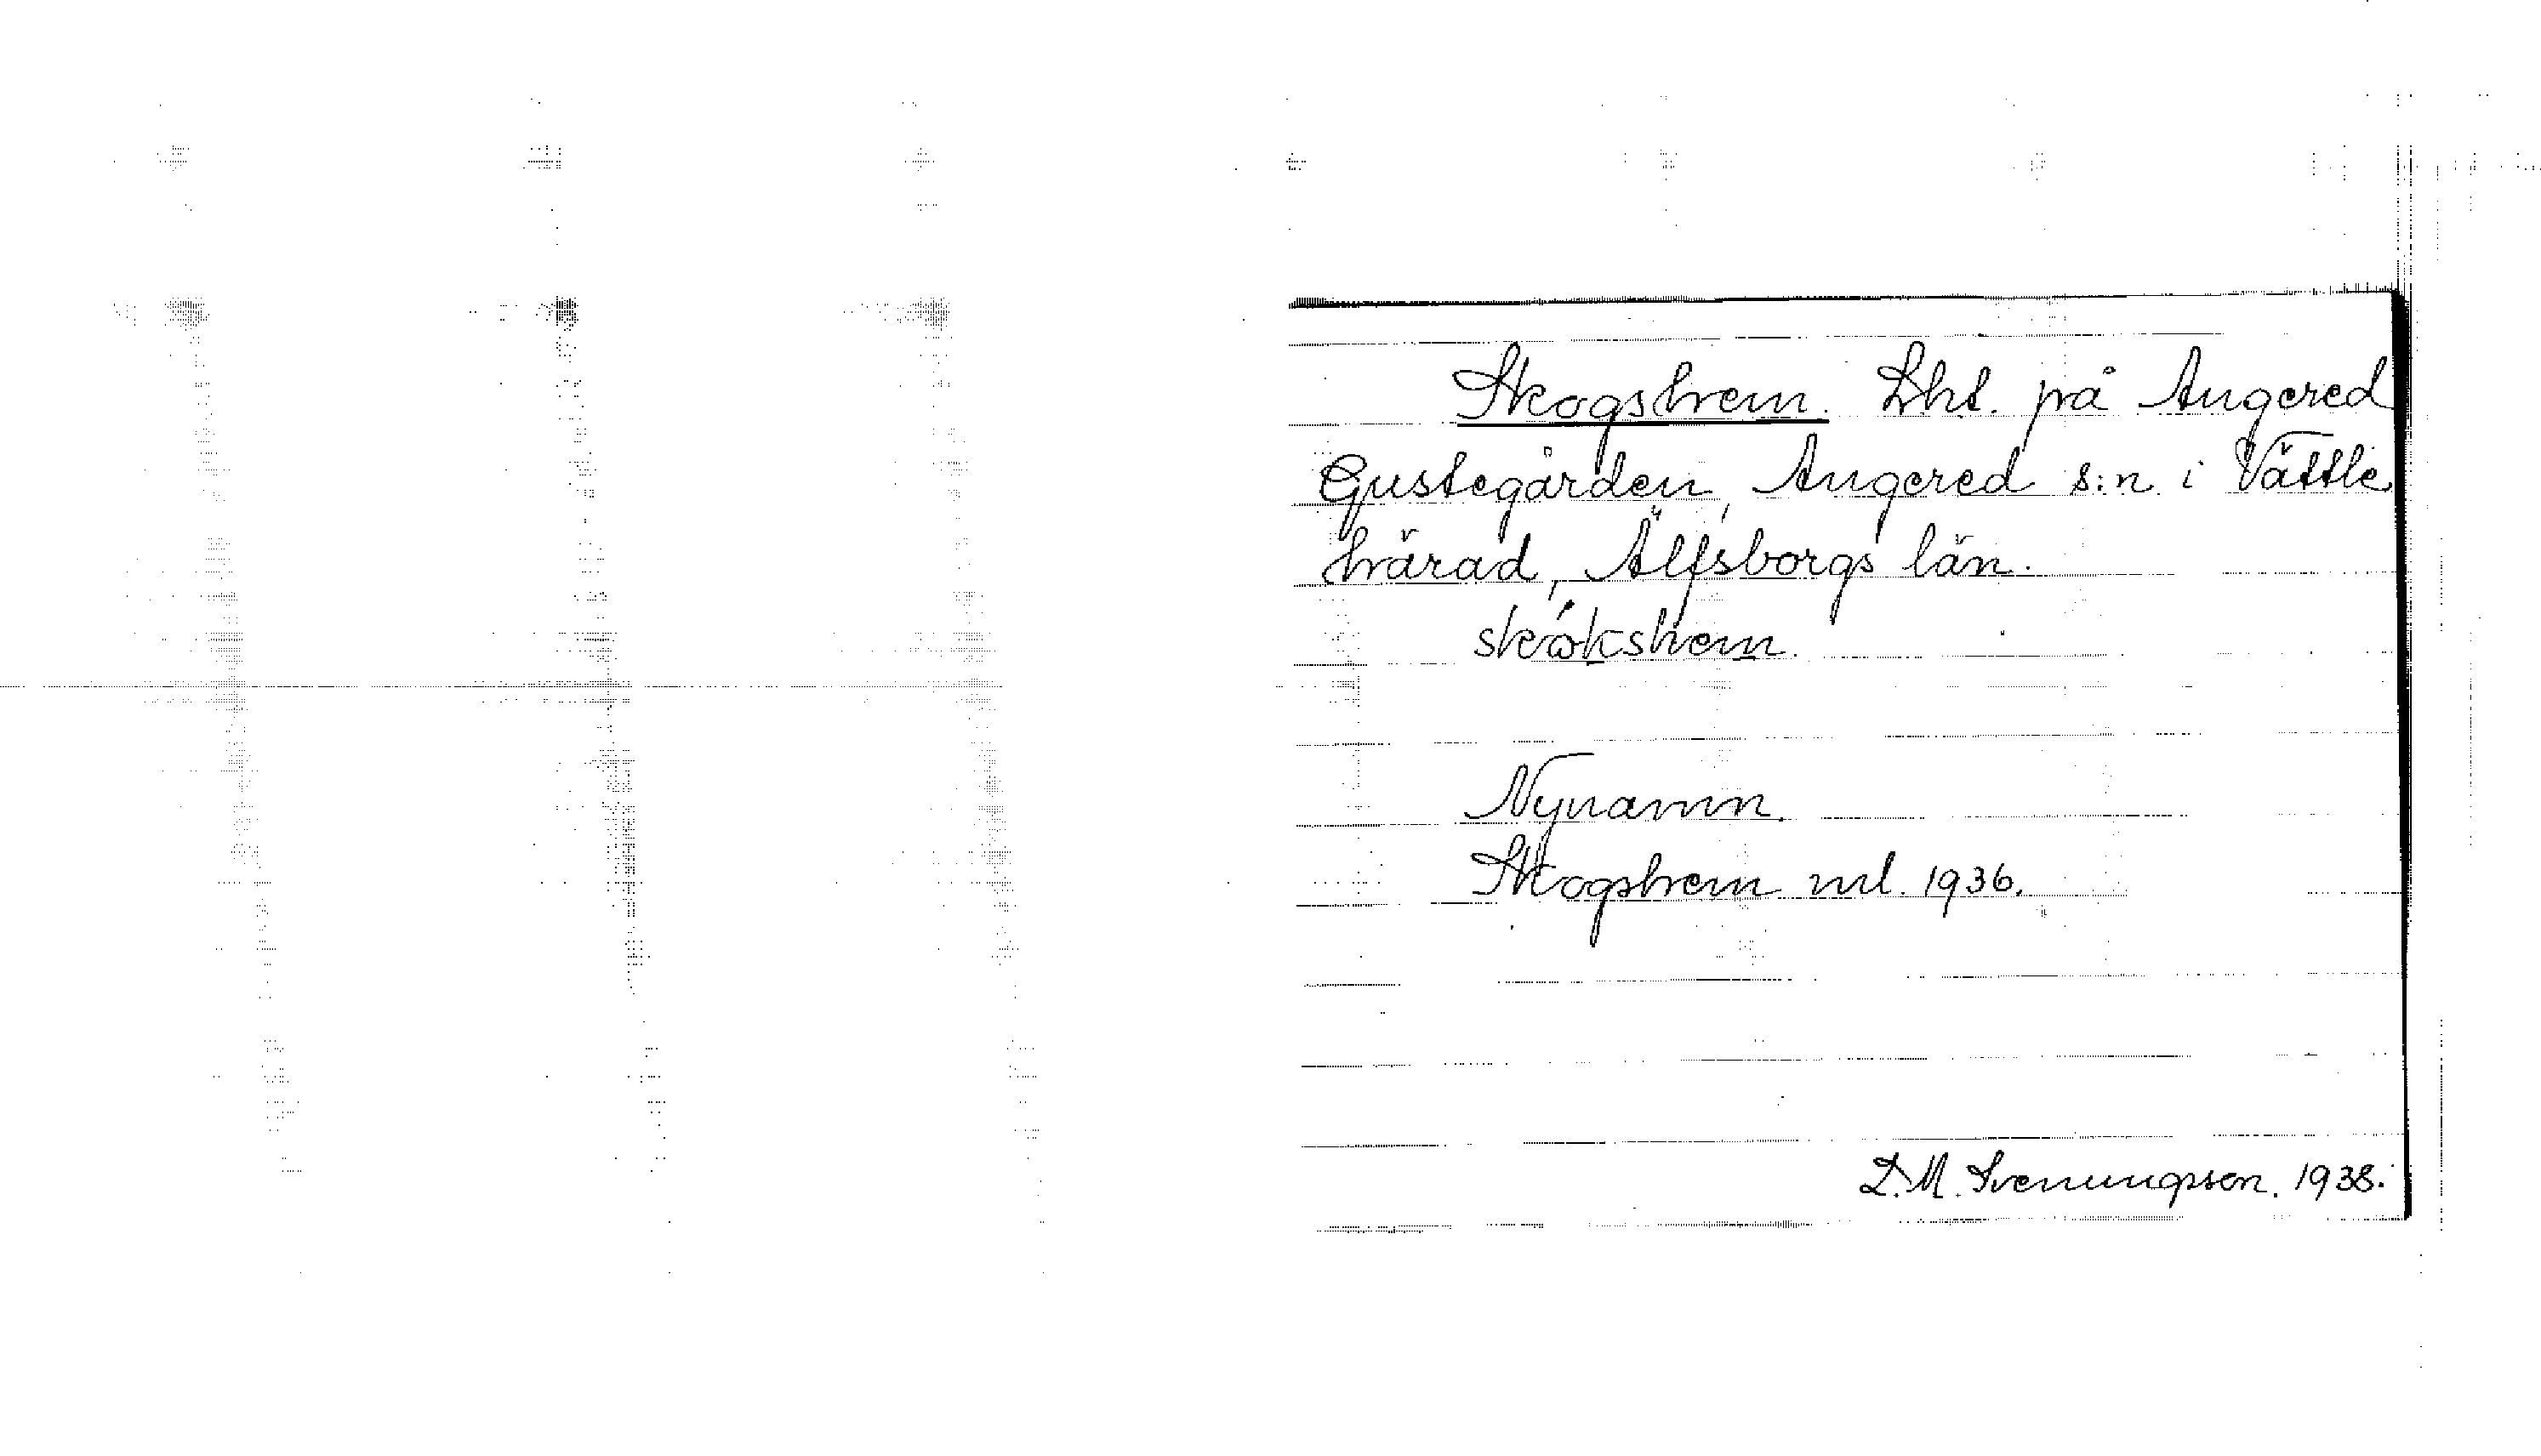 Skogshem. Lht. på Angered
Gustegården, Angered s:n i Vättle
härad, Älfsborgs län.
skökshem.
Nynamn.
Skogshem ml. 1936.
D. M. Svenungsson. 1938.